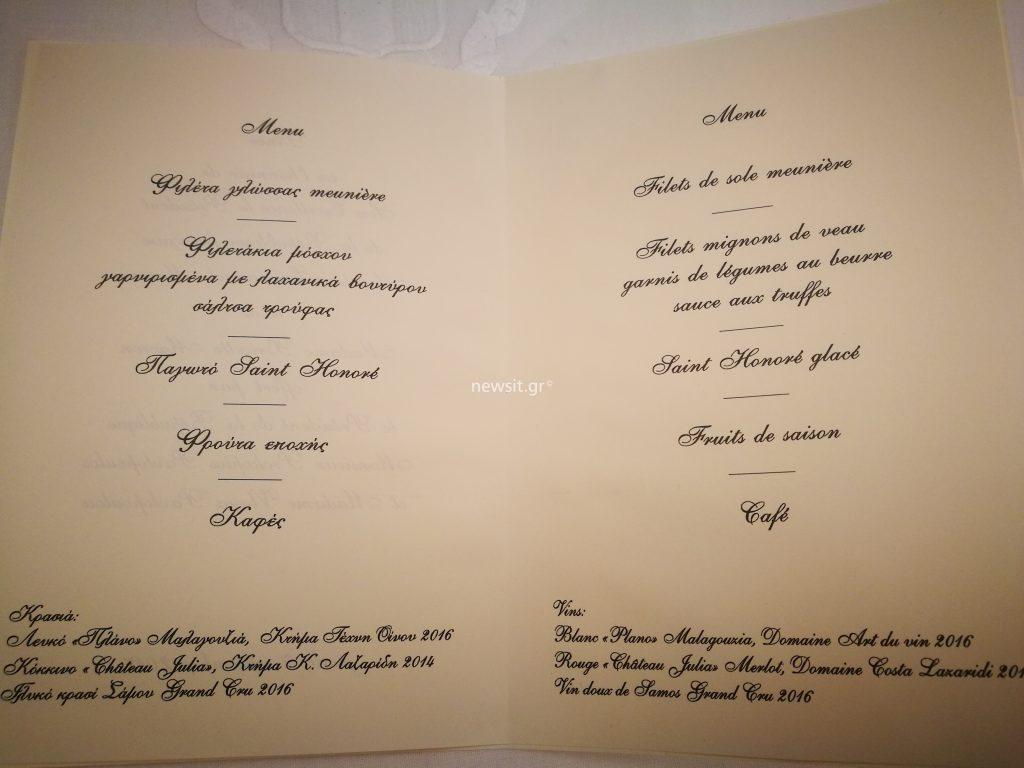 Menu
Φιλέτα γλώσσας meunière
Φιλετάκια μόσχου
γαρνιρισμένα με λαχανικά βουτύρου
σάλτσα τρούφας
Παγωτό Saint Honoré
Φρούτα εποχής
Καφές
Κρασιά:
Λευκό «Πλάνο» Μαλαγουζιά, Κτήμα Τέχνη Οίνου 2016
Κόκκινο «Château Julia», Κτήμα Κ. Λαζαρίδη 2014
Γλυκό κρασί Σάμου Grand Cru 2016
Menu
Filets de sole meunière
Filets mignons de veau
garnis de légumes au beurre
sauce aux truffes
Saint Honoré glacé
Fruits de saison
Café
Vins:
Blanc «Plano» Malagouzia, Domaine Art du vin 2016
Rouge «Château Julia» Merlot, Domaine Costa Lazaridi
Vin doux de Samos Grand Cru 2016
newsit.gr©